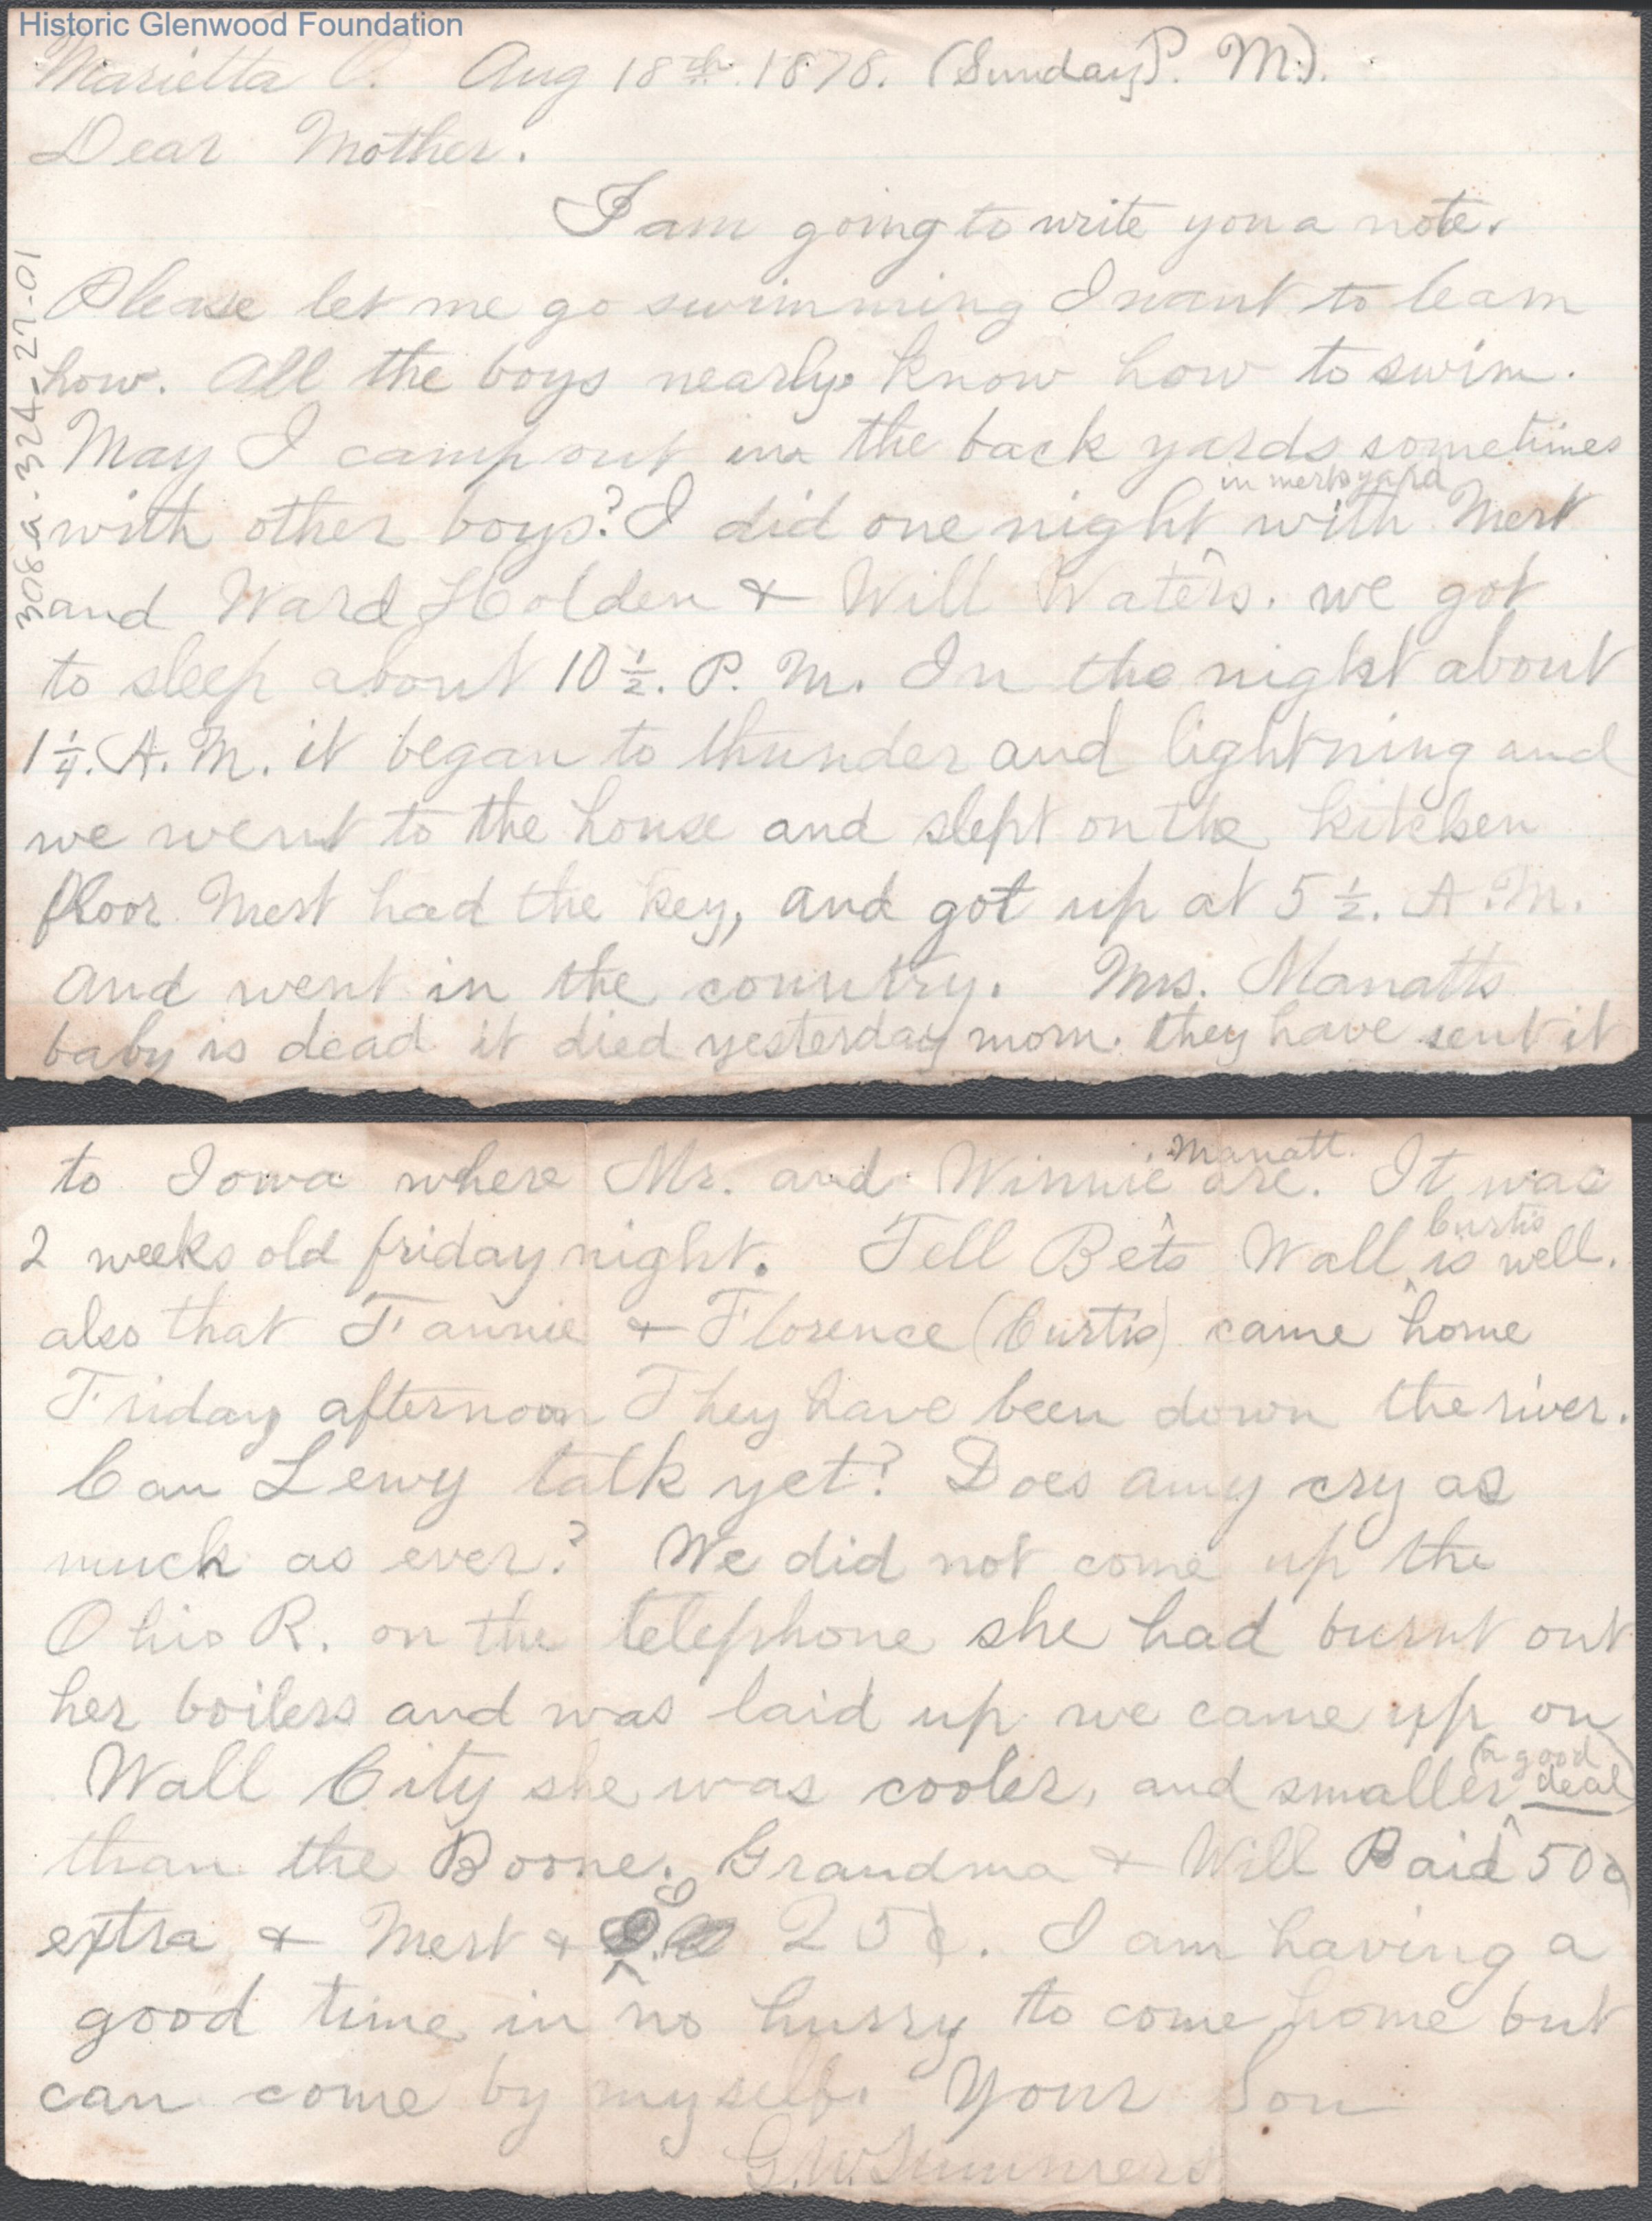 Historic Glenwood Foundation
Marietta O. Aug 18th. 1878. (Sunday P. M.).
Dear Mother.
I am going to write you a note.
Please let me go swimming I want to learn
how. All the boys nearly know how to swim.
May I camp out in the back yards sometimes
in merts yard
with other boys? I did one night with Mert
and Ward Holden & Will Waters. we got
to sleep about 10 ½. P. M. In the night about
1 ¼. A. M. it began to thunder and lightning and
we went to the house and slept on the kitchen
floor Mert had the key, and got up at 5 ½. A. M.
and went in the country. Mrs. Manatts
baby is dead it died yesterday morn. they have sent it
308-a-324-27-01
Manatt.
to Iowa where Mr. and Winnie are. It was
Curtis
2 weeks old friday night. Tell Bets Wall is well.
also that Fannie & Florence (Curtis) came home
Friday afternoon They have been down the river.
Can Lewy talk yet? Does amy cry as
much as ever? We did not come up the
Ohio R. on the telephone she had burnt out
her boilers and was laid up we came up on
Wall City she was cooler, and smaller (a good deal)
than the Boone. Grandma & Will Paid 50¢
extra & Mert & 25¢. I am having a
good time in no hurry to come home but
can come by myself. Your Son
G. W. Summers